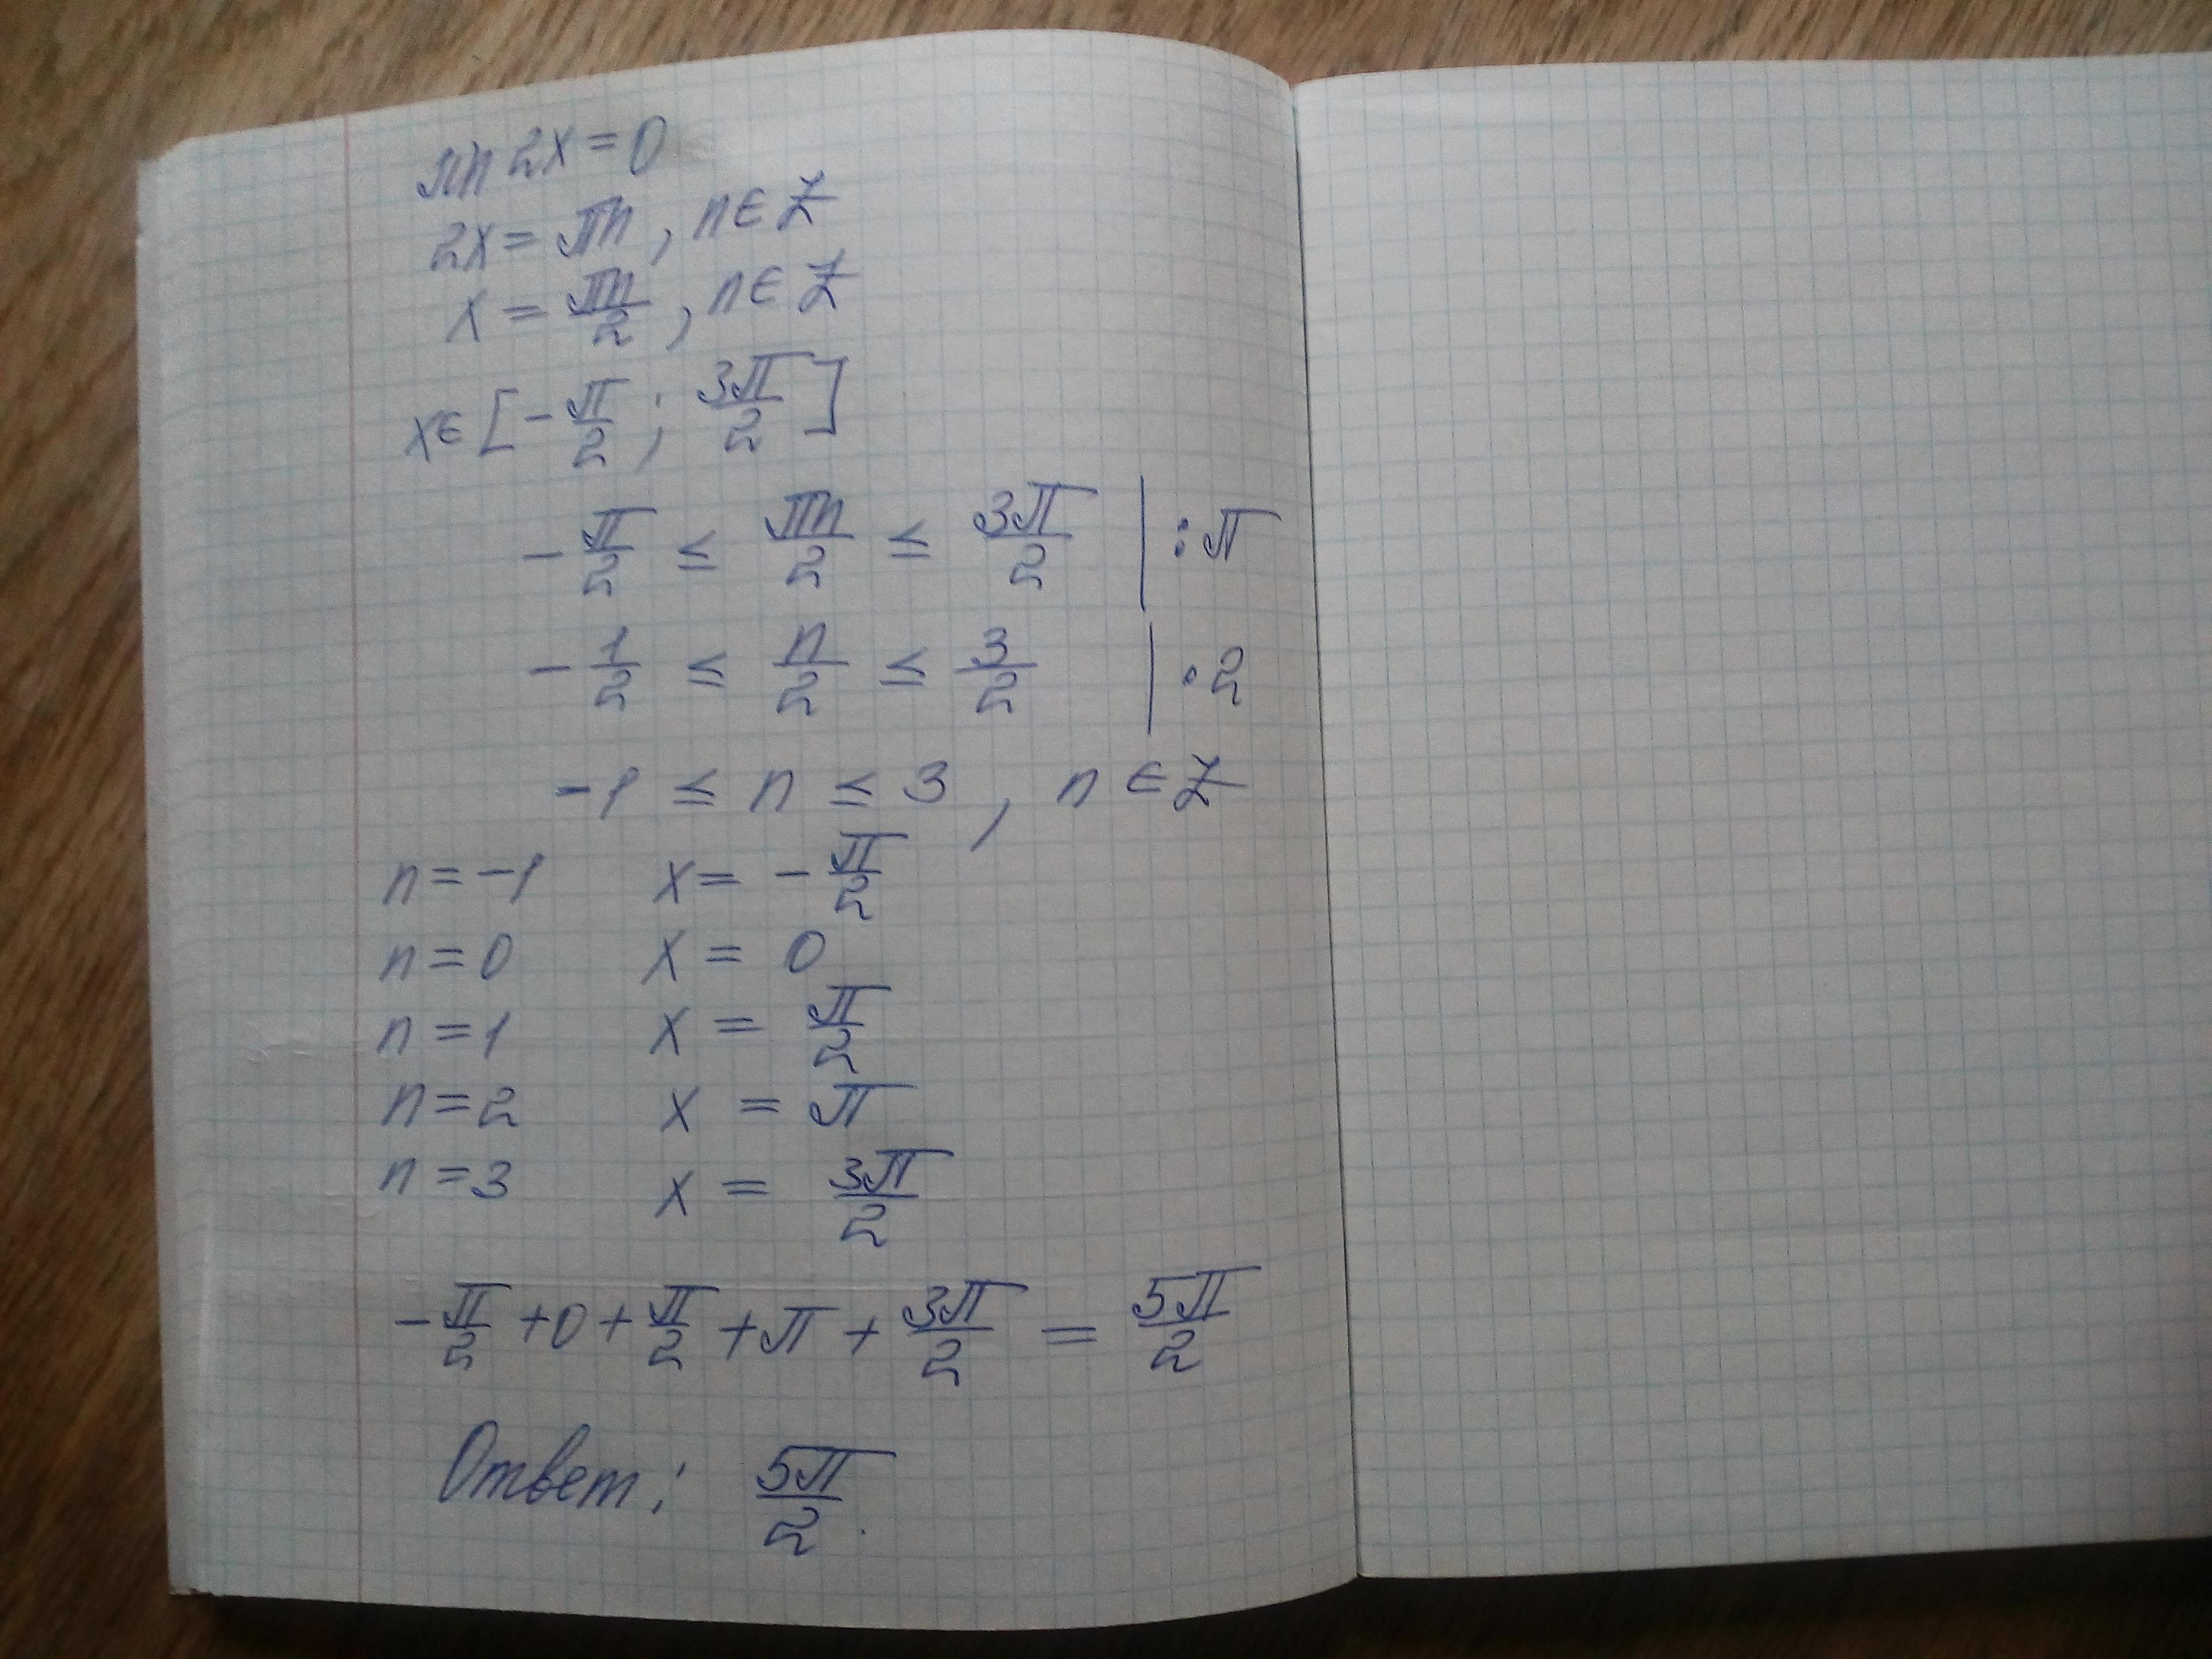 sin 2x = 0
2x = πn, n ∈ Z
x = πn/2, n ∈ Z
x ∈ [-π/2; 3π/2]
-π/2 ≤ πn/2 ≤ 3π/2 | : π
-1/2 ≤ n/2 ≤ 3/2 | · 2
-1 ≤ n ≤ 3, n ∈ Z
n = -1 x = -π/2
n = 0 x = 0
n = 1 x = π/2
n = 2 x = π
n = 3 x = 3π/2
-π/2 + 0 + π/2 + π + 3π/2 = 5π/2
Ответ: 5π/2.